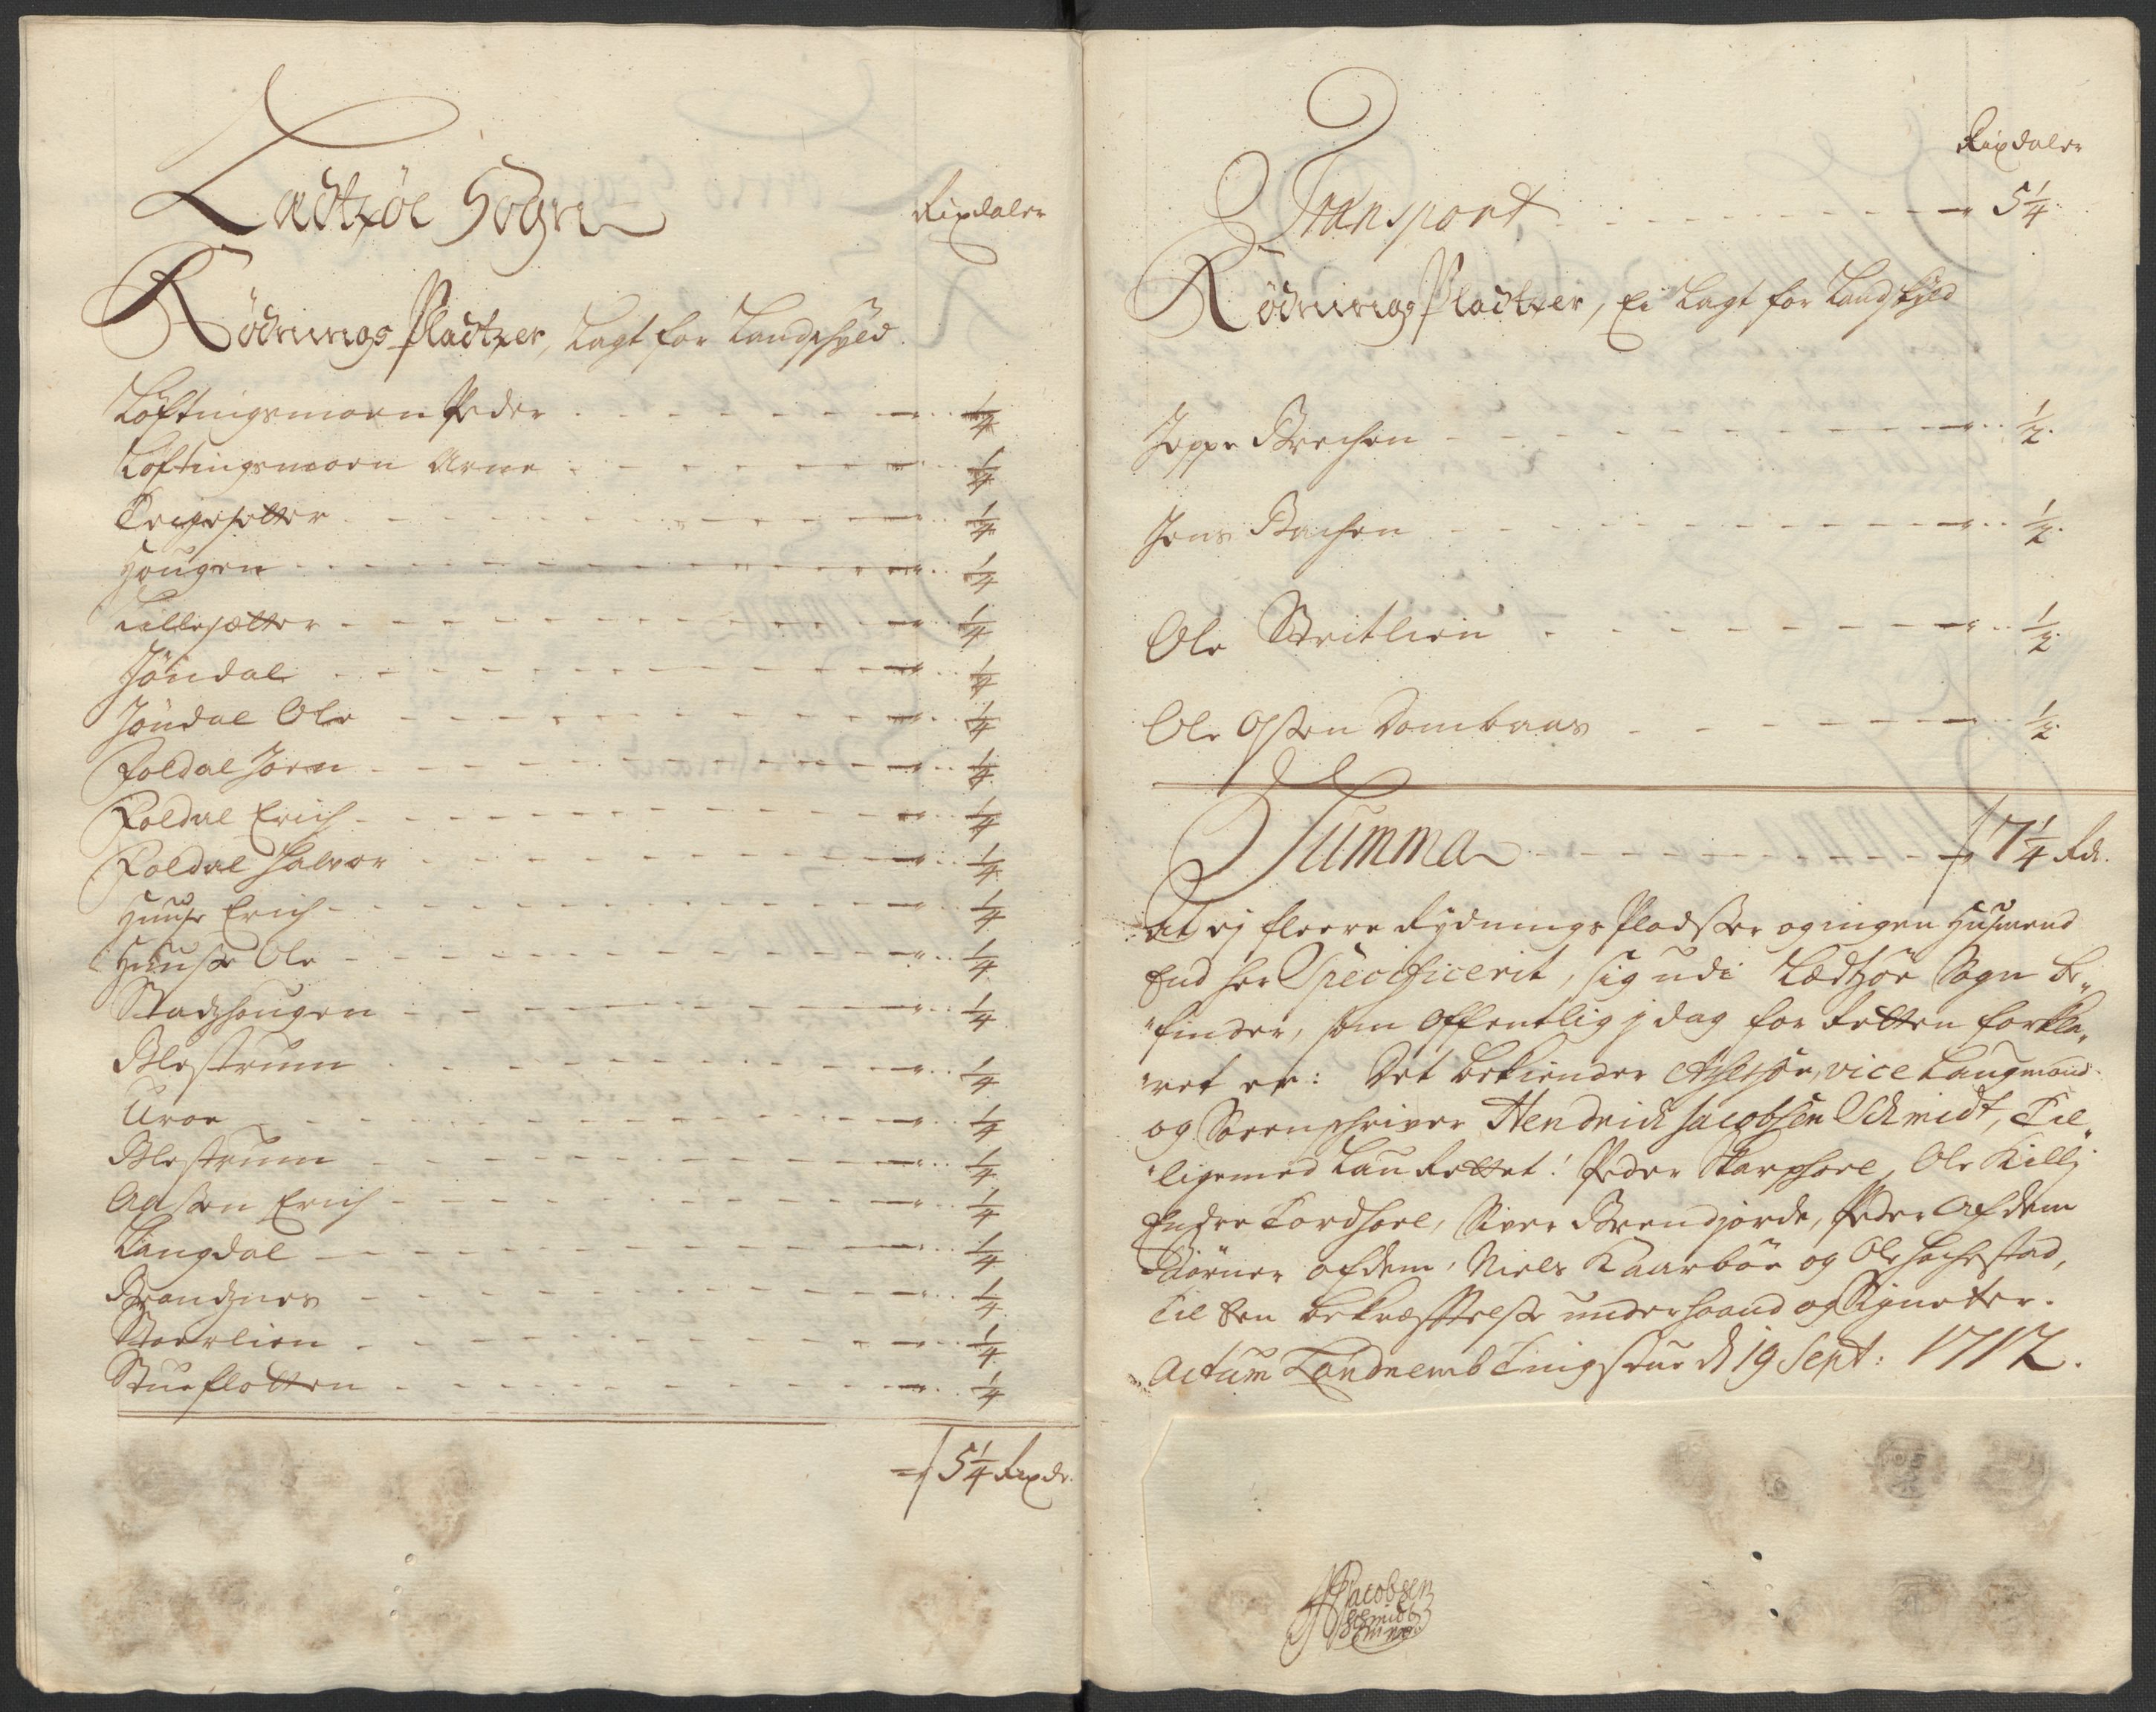 Ladtzöe Sogn
Rixdaler
Rödnings Pladtzer, Lagt for Landschÿld
Löftingsmoen Peder - - - 1/4
Löftingsmoen Arne - - - 1/4
Teigesetter - - - 1/4
Hougen - - - 1/4
Lillesætter - - - 1/4
Jöndal - - - 1/4
Jöndal Ole - - - 1/4
Foldal Joen - - - 1/4
Foldal Erich - - - 1/4
Foldal Halvor - - - 1/4
Huuse Erich - - - 1/4
Huuse Ole - - - 1/4
Stadshougen - - - 1/4
Blestrum - - - 1/4
Uroe - - - 1/4
Blestrum - - - 1/4
Aasen Erich - - - 1/4
Langdal - - - 1/4
Brandznes - - - 1/4
Stoerlien - - - 1/4
Stueflotten - - - 1/4
5 1/4 Rixdr.
Rixdaler
Transport - - - 5 1/4
Rödnings Pladtzer, Ei Lagt for Landskyld
Joppe Brechen - - - 1/2.
Jens Bachen - - - 1/2.
Ole Stritlien - - - 1/2.
Ole Olsen Dombaas - - - 1/2
Summa - - - 7 1/4 Rdr.
At ej fleere Rydnings Pladser og ingen Husmend
End her Specificerit, sig udi Lædzöe Sogn be„
„finder, som offentlig j dag for Retten forkla„
„ret er: Det bekiender vice Laugmand
og Sorenschriver Hendrich Jacobsen Schmidt, Til„
„ligemed Lau Rettet: Peder Skarphoel, Ole Killj
Endre Tordhoel, Siver Brendjorde, Peder Afdem
Biörner afdem, Niels Kaarböe og Ole Hachestad,
Til den bekræfftelse under haand og Signeter.
Actum Tondnemb Tingstue d 19 Sept: 1712.
HJacobsen
Schmidt